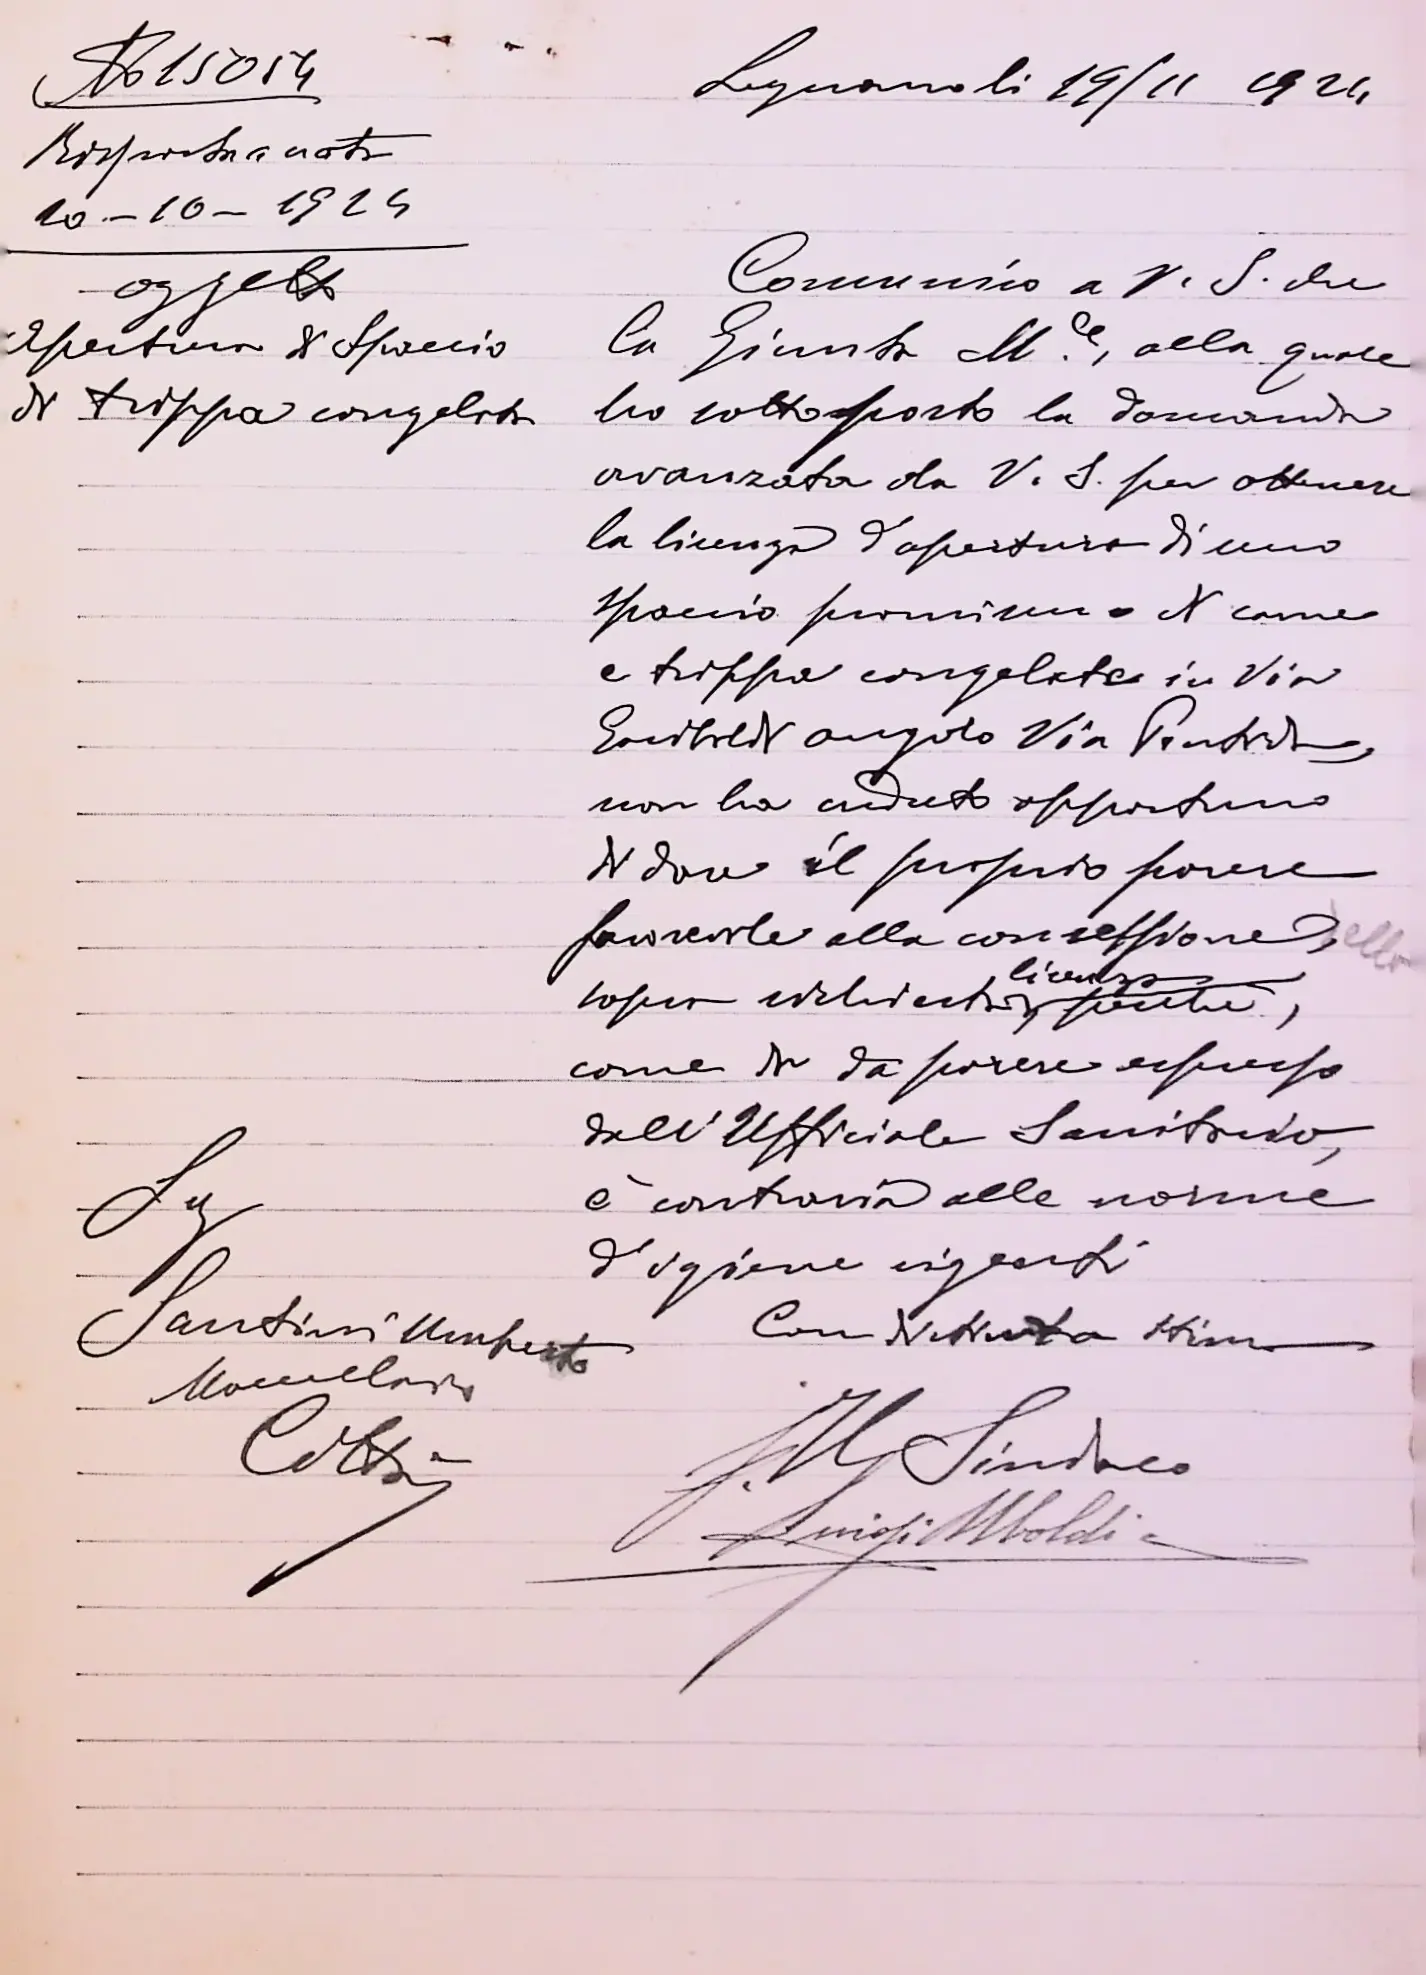 No 15054
Legnano li 19/11 1924
Risposta a nota
20-10-1924
oggetto
Apertura di Spaccio
di trippa congelata
Comunico a V. S. che
la Giunta M.le, alla quale
ho sottoposto la domanda
avanzata da V. S. per ottenere
la licenza d'apertura di uno
spaccio promiscuo di carne
e trippa congelate in Via
Garibaldi angolo Via Pontida,
non ha creduto opportuno
di dare il proprio parere
favorevole alla concessione della
sopra richiesta licenza perchè,
come da parere espresso
dall'Ufficiale Sanitario,
è contraria alle norme
d'igiene vigenti
Con distinta stima
Sig
Santini Umberto
Macellaio
Città
Il Sindaco
Luigi Uboldi